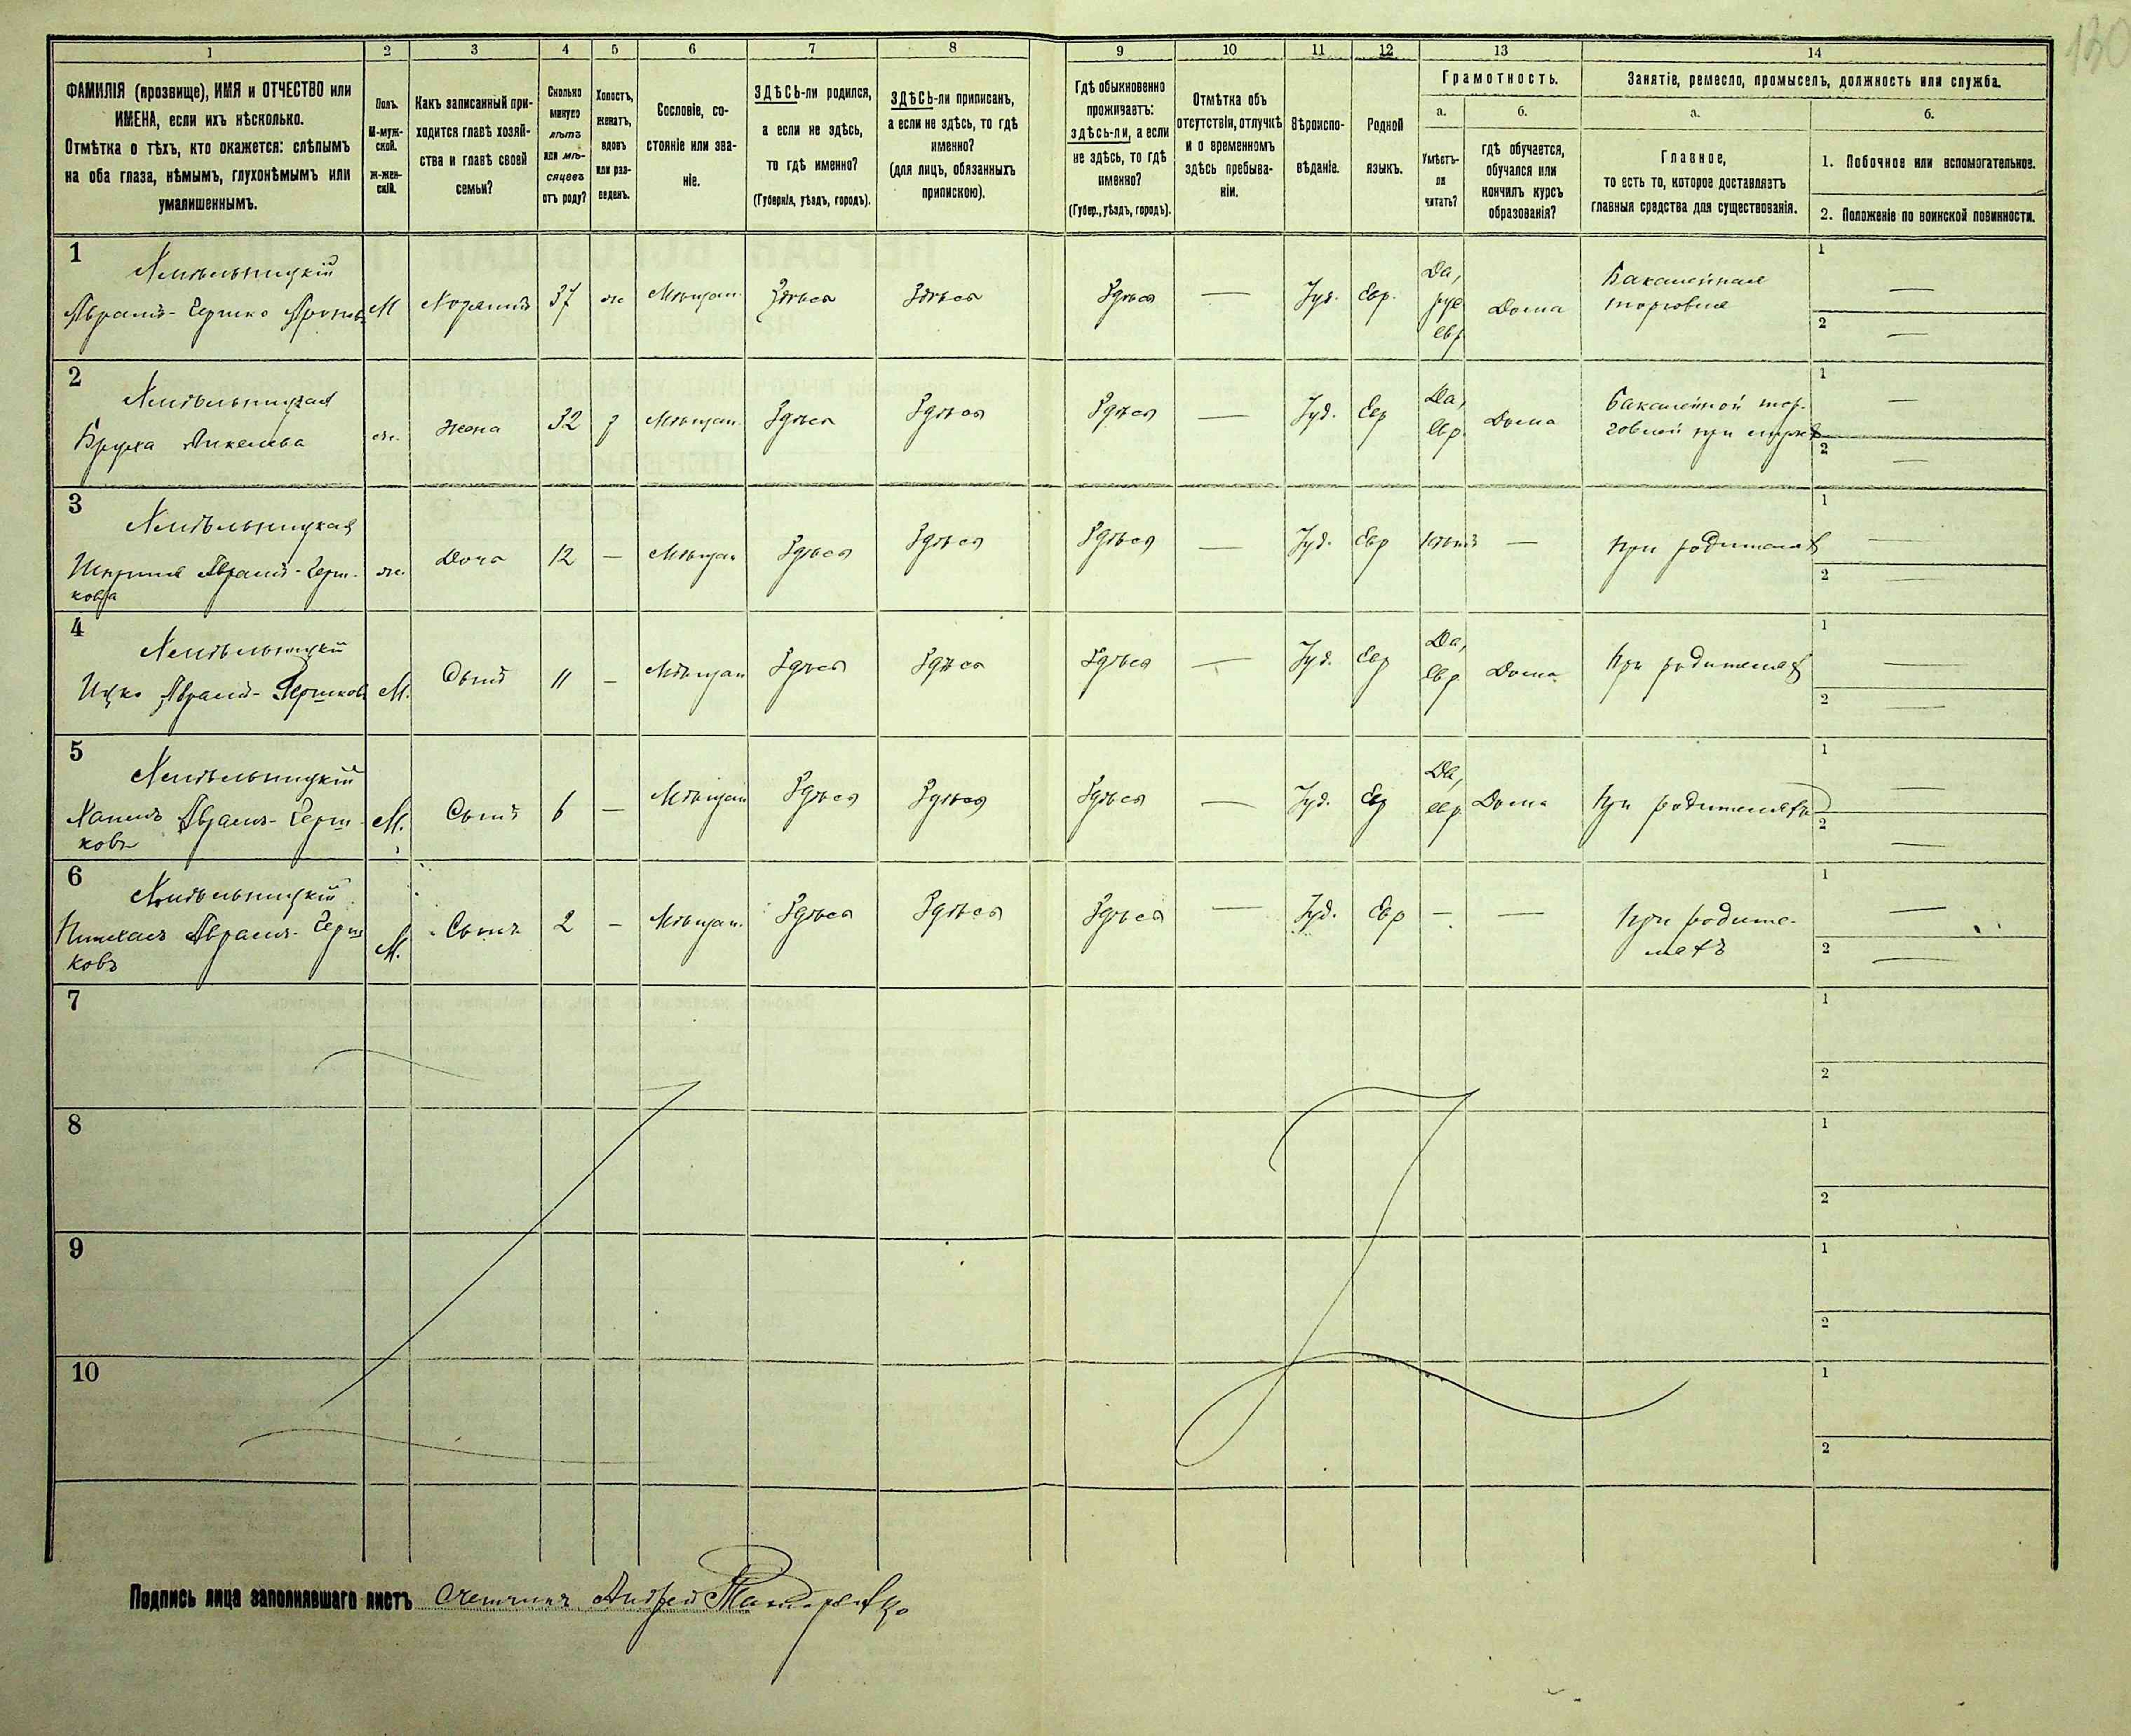 130
1 2 3 4 5 6 7 8 9 10 11 12 13 14
ФАМИЛІЯ (прозвище), ИМЯ и ОТЧЕСТВО или
ИМЕНА, если ихъ нѣсколько.
Отмѣтка о тѣхъ, кто окажется: слѣпымъ
на оба глаза, нѣмымъ, глухонѣмымъ или
умалишеннымъ.
Полъ.
М-муж-
ской.
Ж-жен-
скій.
Какъ записанный при-
ходится главѣ хозяй-
ства и главѣ своей
семьи?
Сколько
минуло
лѣтъ
или мѣ-
сяцевъ
отъ роду?
Холостъ,
женатъ,
вдовъ
или раз-
веденъ.
Сословіе, со-
стояніе или зва-
ніе.
ЗДѢСЬ-ли родился,
а если не здѣсь,
то гдѣ именно?
(Губернія, уѣздъ, городъ).
ЗДѢСЬ-ли приписанъ,
а если не здѣсь, то гдѣ
именно?
(для лицъ, обязанныхъ
припискою).
Гдѣ обыкновенно
проживаетъ:
здѣсь-ли, а если
не здѣсь, то гдѣ
именно?
(Губер., уѣздъ, городъ).
Отмѣтка объ
отсутствіи, отлучкѣ
и о временномъ
здѣсь пребыва-
ніи.
Вѣроиспо-
вѣданіе.
Родной
языкъ.
Грамотность.
а. б.
Умѣетъ-
ли
читать?
гдѣ обучается,
обучался или
кончилъ курсъ
образованія?
Занятіе, ремесло, промыселъ, должность или служба.
а. б.
Главное,
то есть то, которое доставляетъ
главныя средства для существованія.
1. Побочное или вспомогательное.
2. Положеніе по воинской повинности.
1
Хмѣльницкій
Абрамъ-Гершко М Хозяинъ 37 ж Мѣщан. Здѣсь Здѣсь Здѣсь — Іуд. Евр. Да, рус евр Дома Бакалейная
торговля
1 —
2 —
2
Хмѣльницкая
ж. Жена 32 Мѣщан. Здѣсь Здѣсь Здѣсь — Іуд. Евр Да, Евр. Дома Бакалейной тор-
говлей при
1 —
2 —
3
Хмѣльницкая
Абрамъ-Герш-
кова
ж. Дочь 12 — Мѣщан Здѣсь Здѣсь Здѣсь — Іуд. Евр Нѣтъ — При родителяхъ
1 —
2 —
4
Хмѣльницкій
Ицко Абрамъ-Гершковъ М. Сынъ 11 — Мѣщан Здѣсь Здѣсь Здѣсь — Іуд. Евр Да, Евр. Дома При родителяхъ
1 —
2 —
5
Хмѣльницкій
Абрамъ-Герш-
ковъ
М. Сынъ 6 — Мѣщан Здѣсь Здѣсь Здѣсь — Іуд. Евр Да, евр. Дома При родителяхъ
1 —
2 —
6
Хмѣльницкій
Абрамъ-Герш
ковъ
М. Сынъ 2 — Мѣщан. Здѣсь Здѣсь Здѣсь — Іуд. Евр — — При родите-
ляхъ
1 —
2 —
7
1
2
8
1
2
9
1
2
10
1
2
Подпись лица заполнявшаго листъ Счетчикъ Андрей